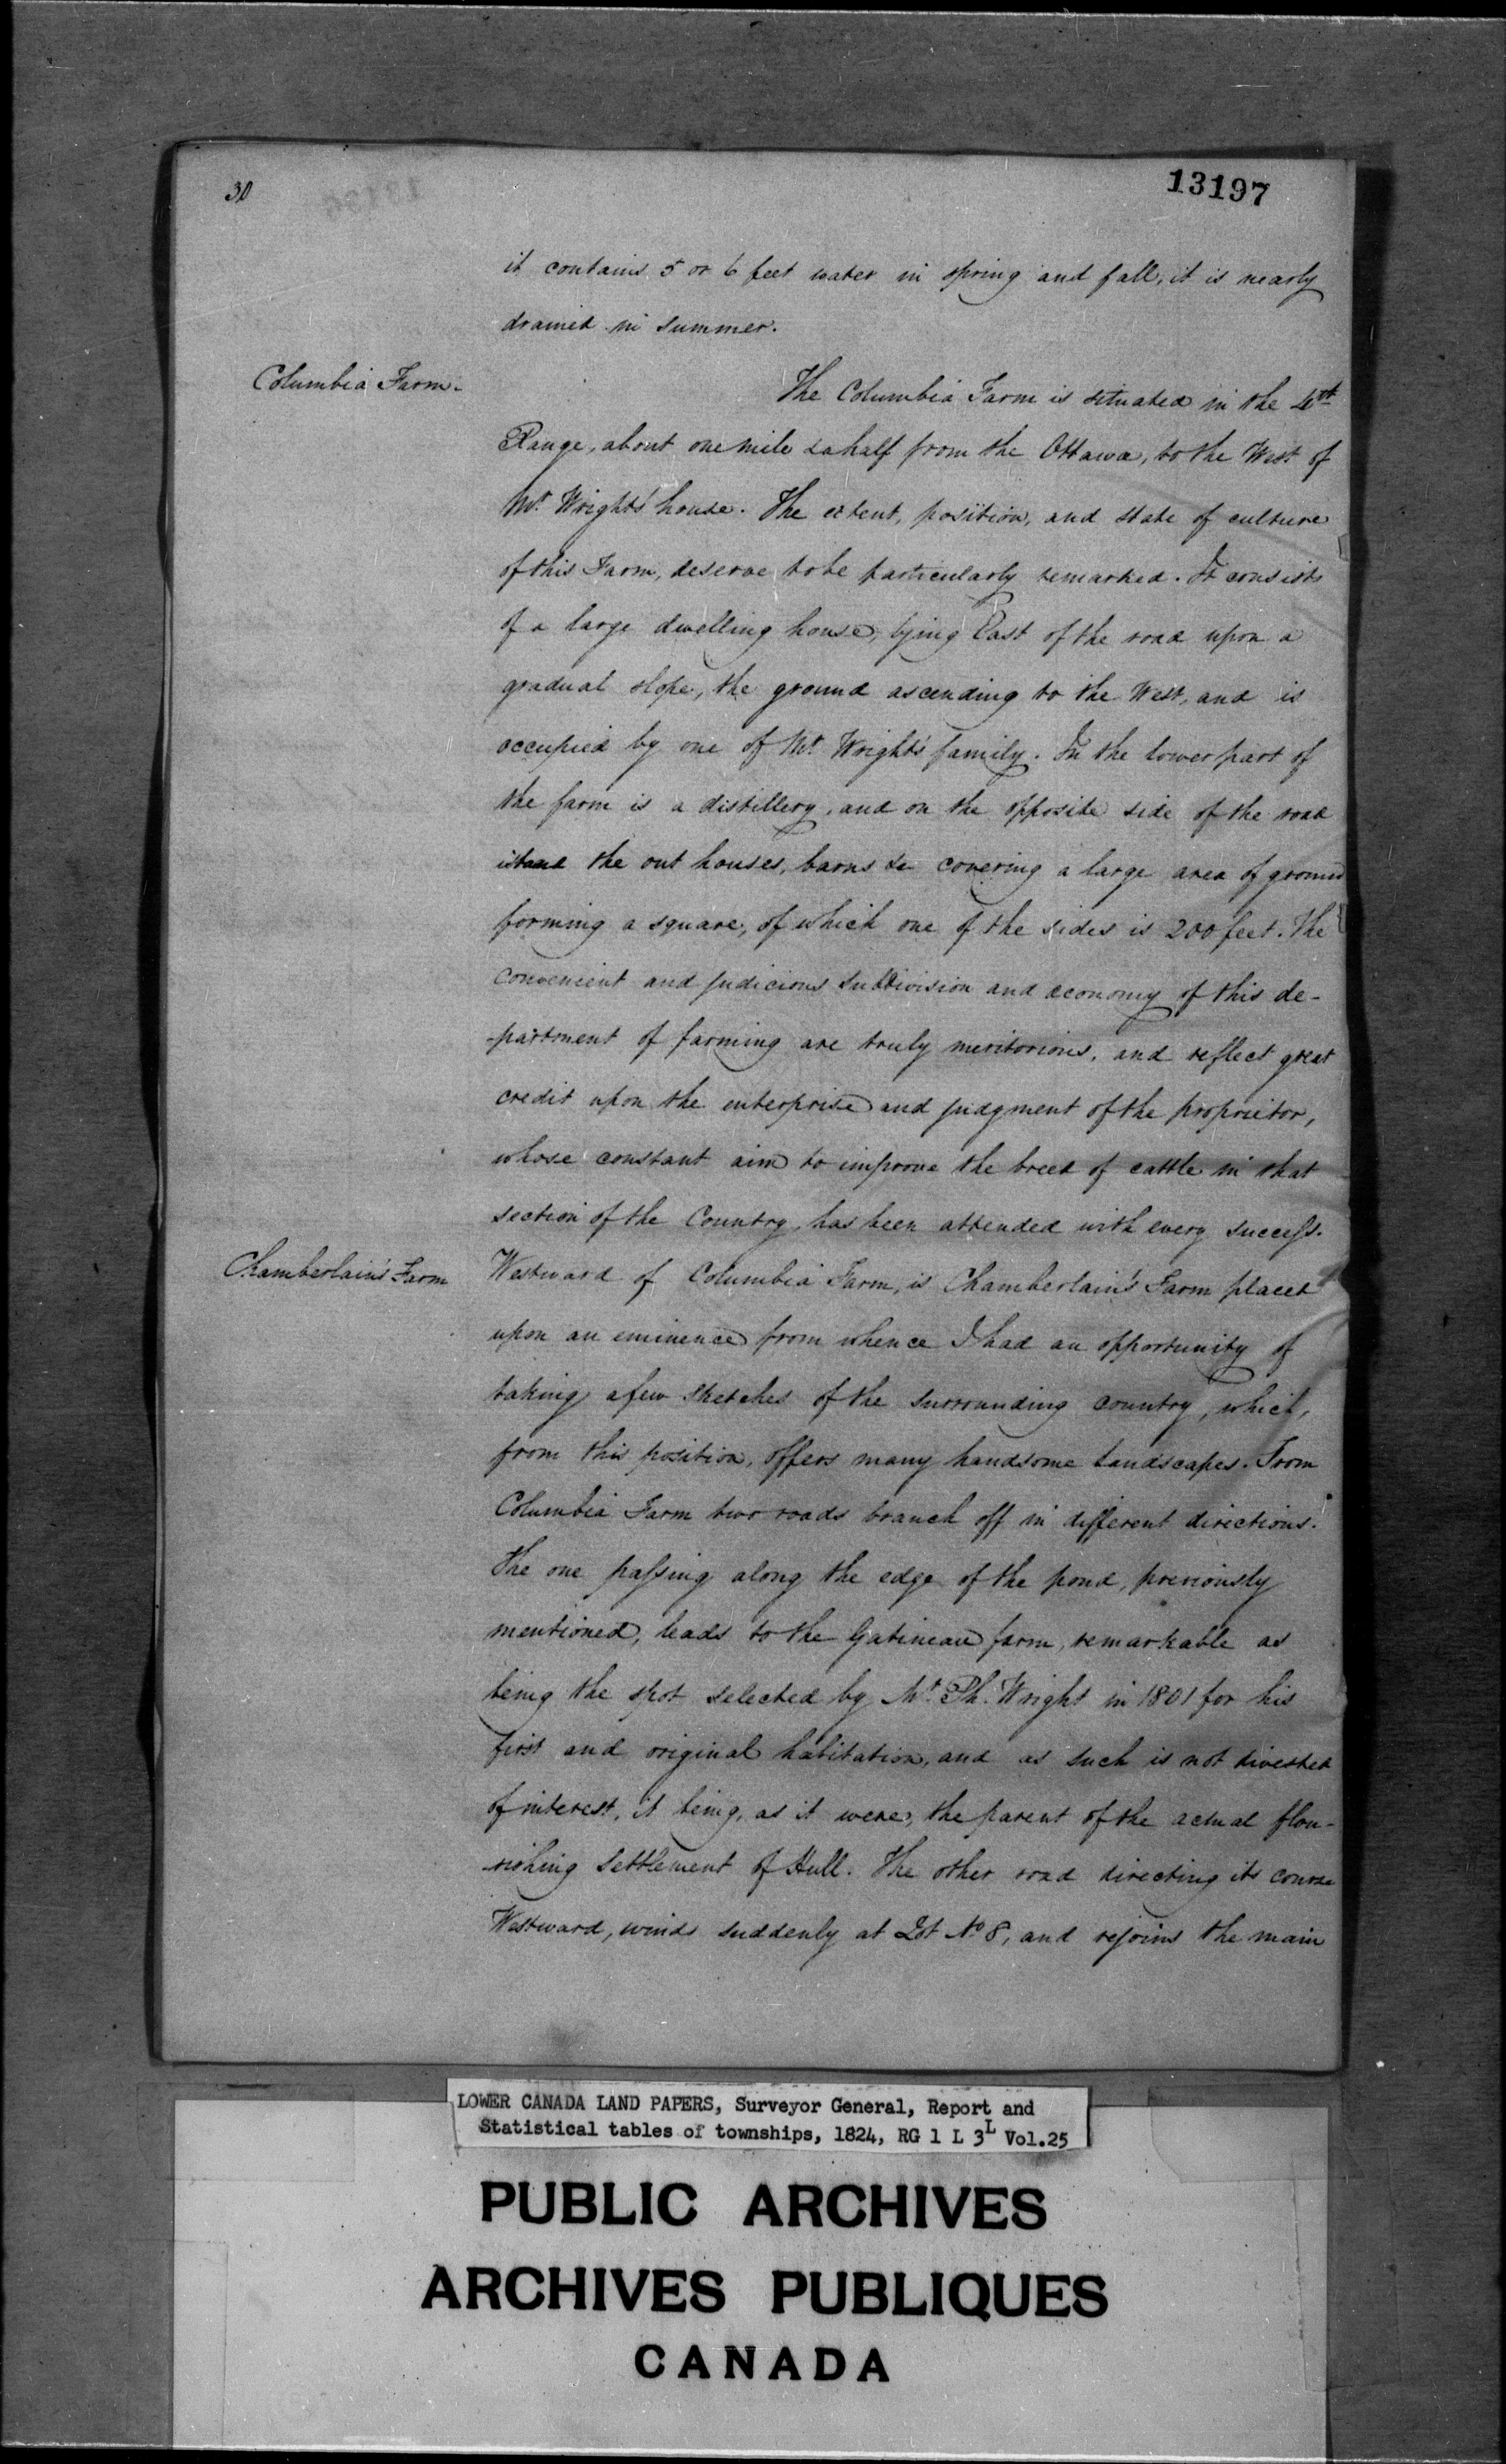 30
13197
it contains 5 or 6 feet water in spring and fall, it is nearly
drained in summer.
Columbia Farm.
The Columbia Farm is situated in the 4th
Range, about one mile & a half from the Ottawa, to the West of
Mr Wright's house. The extent, position, and state of culture
of this Farm, deserve to be particularly remarked. It consists
of a large dwelling house, lying East of the road upon a
gradual slope, the ground ascending to the West, and is
occupied by one of Mr Wright's family. In the lower part of
the farm is a distillery, and on the opposite side of the road
stand the out houses, barns &c covering a large area of ground
forming a square, of which one of the sides is 200 feet. The
convenient and judicious subdivision and œconomy of this de-
-partment of farming are truly meritorious, and reflect great
credit upon the enterprise and judgment of the proprietor,
whose constant aim to improve the breed of cattle in that
section of the Country, has been attended with every success.
Chamberlain's Farm
Westward of Columbia Farm, is Chamberlain's Farm placed
upon an eminence from whence I had an opportunity of
taking a few sketches of the surrounding country, which,
from this position, offers many handsome landscapes. From
Columbia Farm two roads branch off in different directions.
The one passing along the edge of the pond, previously
mentioned, leads to the Gatineau farm, remarkable as
being the spot selected by Mr. Ph. Wright in 1801 for his
first and original habitation, and as such is not divested
of interest, it being, as it were, the parent of the actual flou-
-rishing settlement of Hull. The other road directing its course
Westward, winds suddenly at Lot No 8, and rejoins the main
LOWER CANADA LAND PAPERS, Surveyor General, Report and
Statistical tables of townships, 1824, RG 1 L 3L Vol.25
PUBLIC ARCHIVES
ARCHIVES PUBLIQUES
CANADA